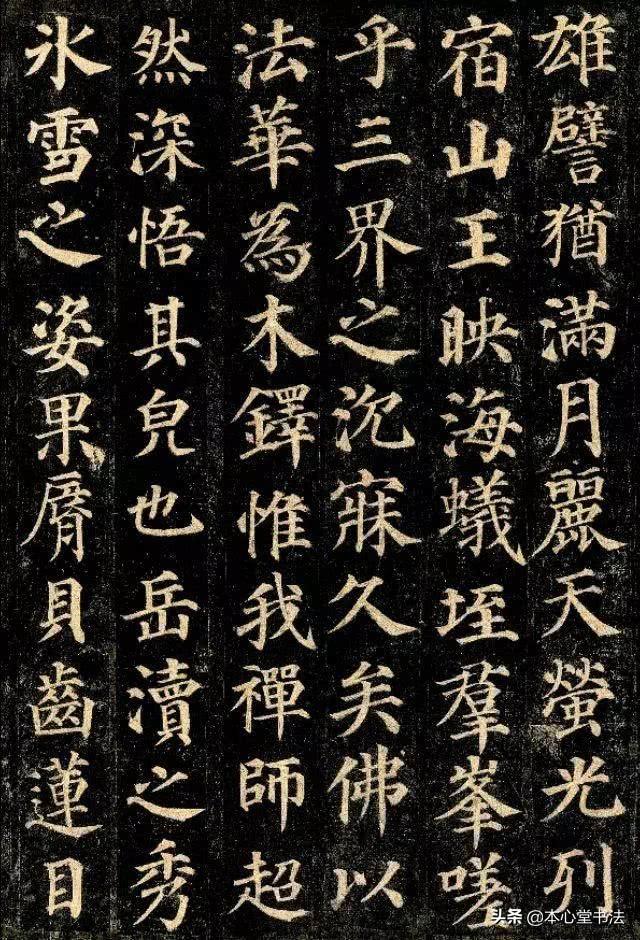 雄譬猶滿月麗天螢光列
宿山王映海蟻垤羣峯嗟
乎三界之沉寐久矣佛以
法華為木鐸惟我禪師超
然深悟其皃也岳瀆之秀
氷雪之姿果脣貝齒蓮目
头条 @本心堂书法